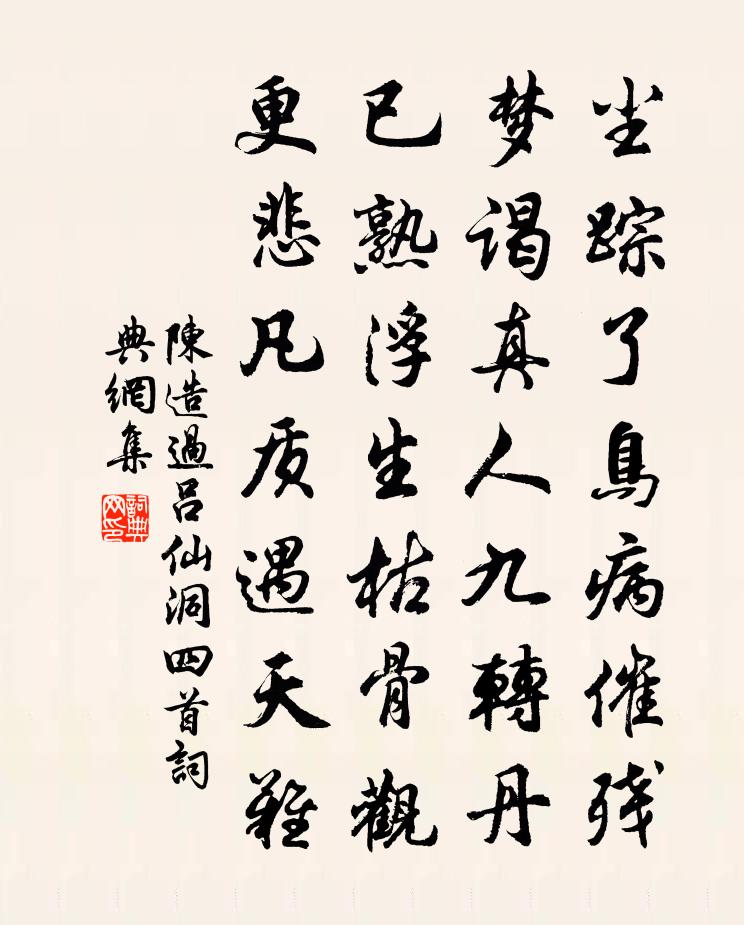 尘踪了鳥病催残
梦谒真人九轉丹
已熟浮生枯骨觀
更悲凡质遇天难
陳造過吕仙洞四首詞
典網集
詞典網印